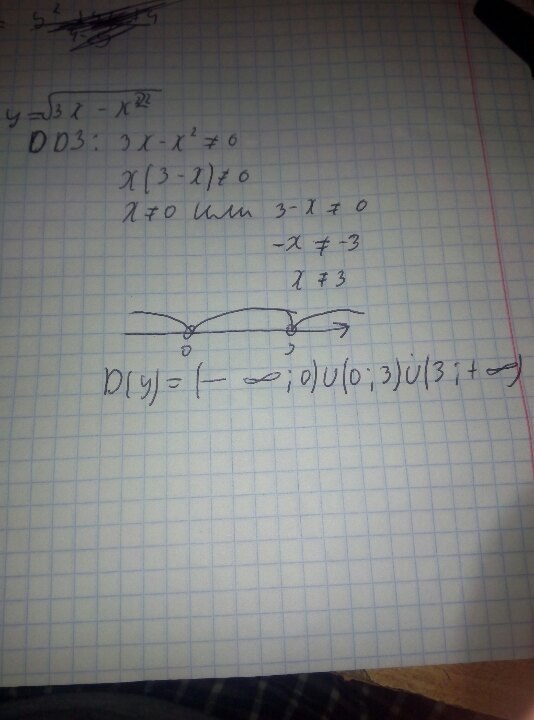 y=√3x - x²
ОДЗ: 3x - x² ≠ 0
x(3 - x) ≠ 0
x ≠ 0 или 3 - x ≠ 0
-x ≠ -3
x ≠ 3
0 3
D(y) = (- ∞; 0) U (0; 3) U (3; + ∞)